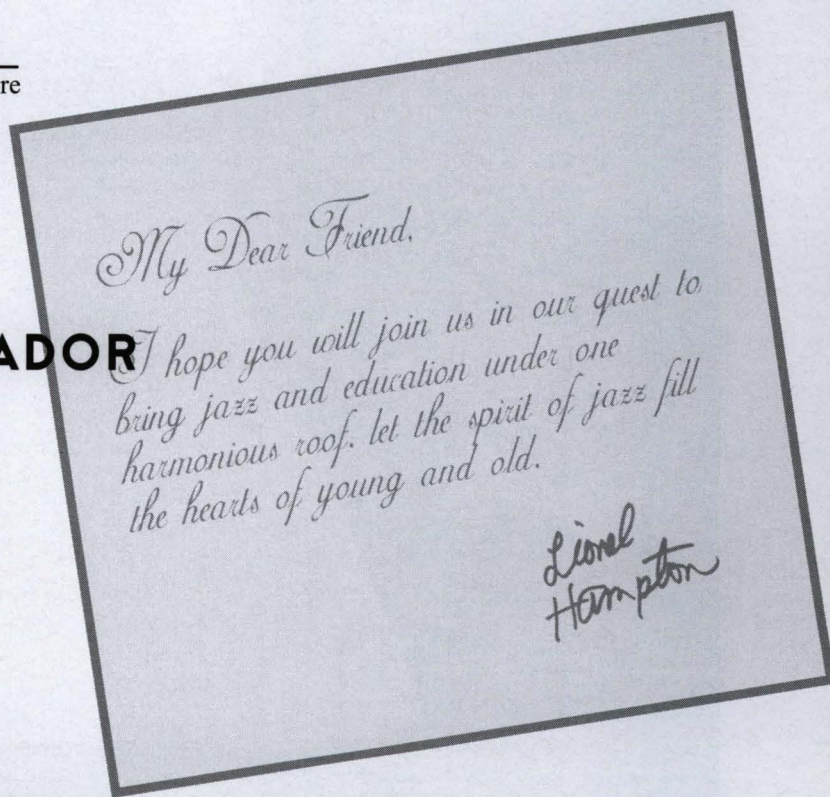 re
ADOR
My Dear Friend,
I hope you will join us in our quest to
bring jazz and education under one
harmonious roof. let the spirit of jazz fill
the hearts of young and old.
Lionel
Hampton